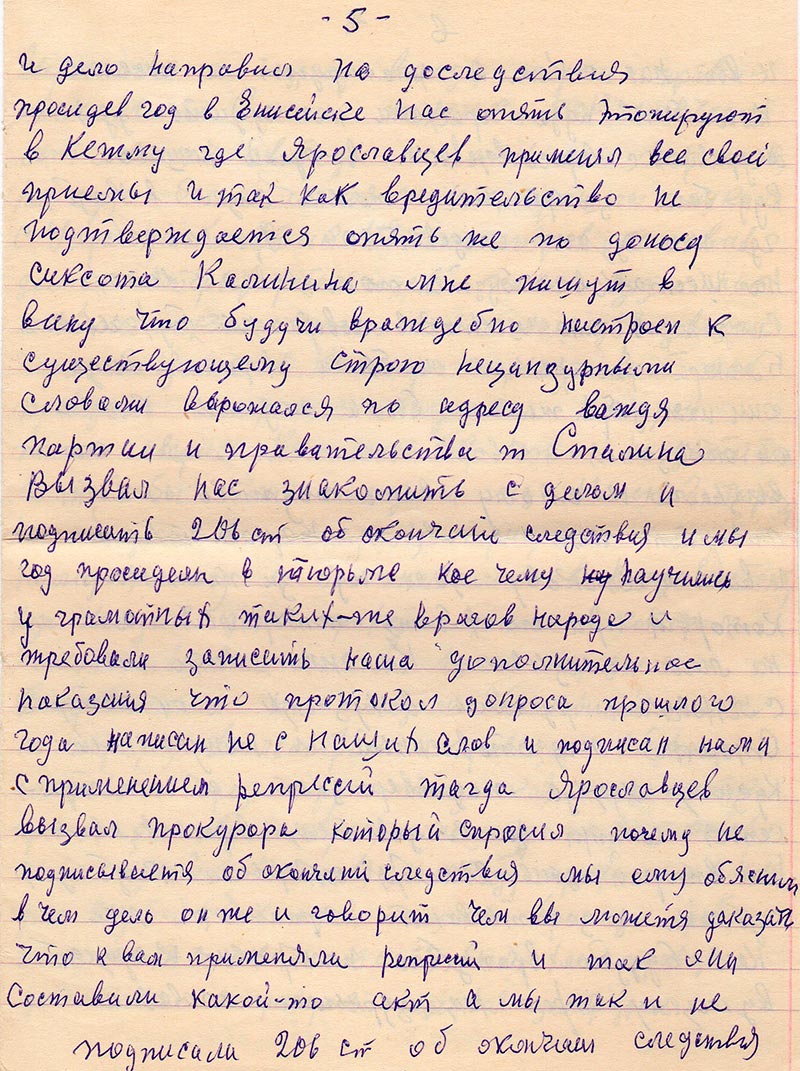 -5-
и дело направил на доследствия
просидев год в Енисейске нас опять этопируют
в Кежму где Ярославцев применял все свои
приемы и так как вредительство не
подтверждается опять же по доноса
сиксота Калинина мне пишут в
вину что будучи враждебно настроен к
существующему строю нецандурными
словами выражался по адресу важдя
партии и правательства т Сталина
Вызвал нас знакомить с делом и
подписать 206 ст об окончаии следствия и мы
год просидели в тюрьме кое чему научились
у грамотных таких-же врагов народа и
требовали записать наша дополнительное
паказания что протокол допроса прошлого
года написан не с наших слов и подписан нами
с применением репрессий тагда Ярославцев
вызвал прокурора который спросил почему не
подписываетя об окончании следствия мы ему обяснили
в чем дель он же и говорит чем вы можетя даказать
что к вам применяли репрессий и так яни
Составили какой-то акт а мы так и не
подписали 206 ст об окончаии следствия